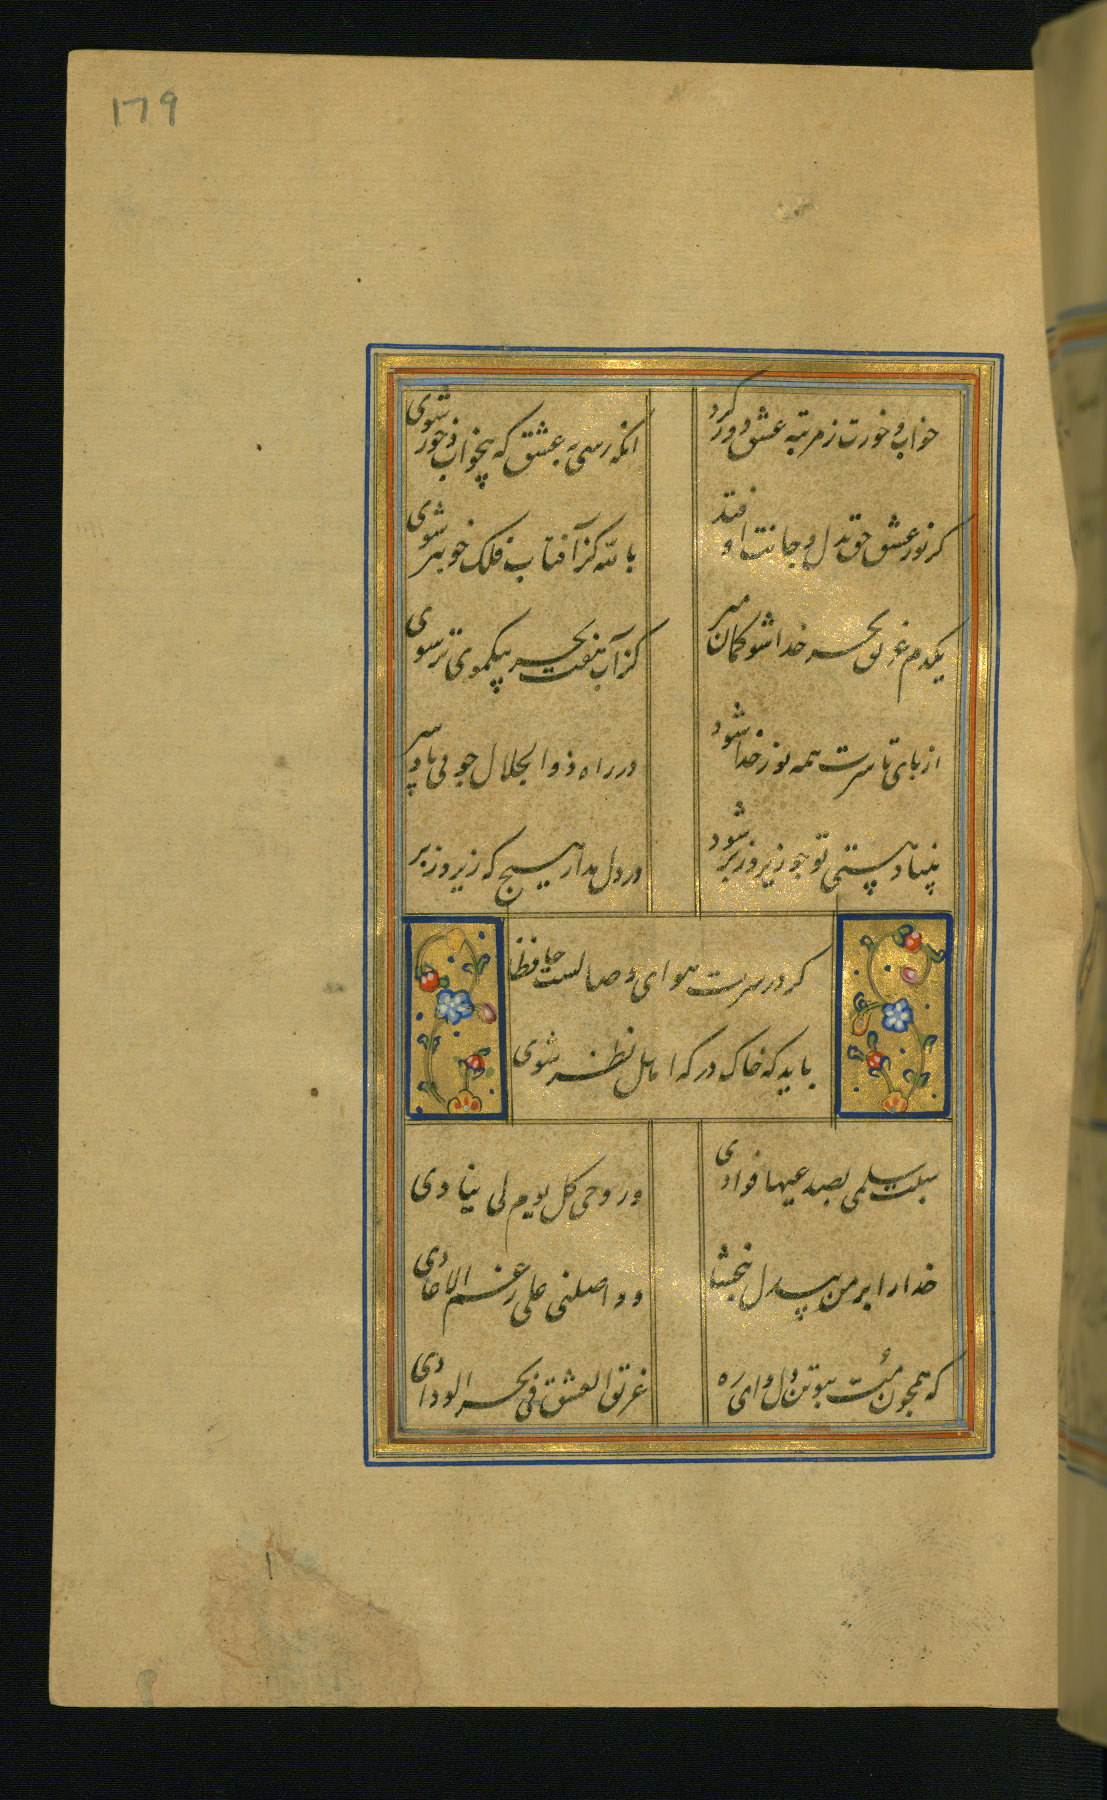 179
خواب و خورت ز مرتبه عشق دور کرد
آنکه رسی به عشق که بیخواب و خور شوی
کر نور عشق حق بدل و جانت اوفتد
بالله کز آفتاب فلک خوبتر شوی
یکدم غریق بحر خدا شو کمان مبر
کز آب هفت بحر بیکموی تر شوی
از پای تا سرت همه نور خدا شود
در راه ذوالجلال چو بی پا و سر شوی
بنیاد هستی تو چو زیر و زبر شود
در دل مدار هیچ که زیر و زبر
کر در سرت هوای وصالست حافظا
باید که خاک درکه اهل نظر شوی
سبت سلمی بصدغیها فوادی
و روحی کل یوم لی ینادی
خدارا بر من بیدل ببخشا
و واصلنی علی رغم الاعادی
که همچون مت ببوتن دل و ای ره
غریق العشق فی بحر الودادی